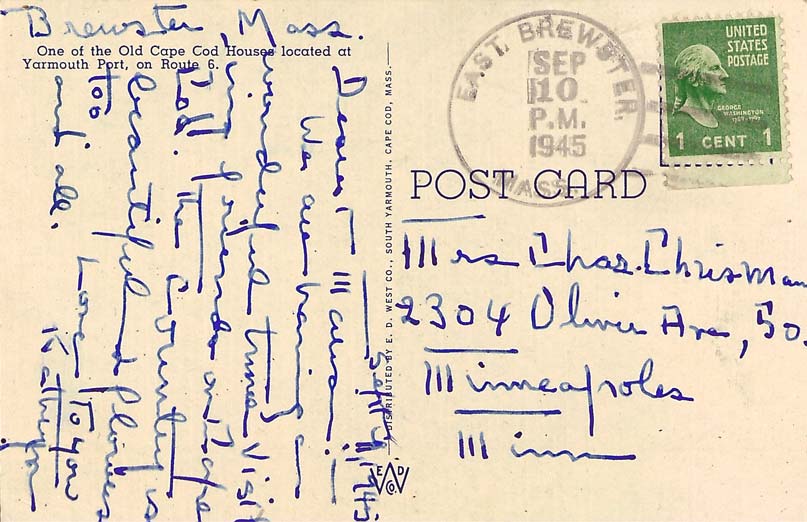 Brewster, Mass.
One of the Old Cape Cod Houses located at
Yarmouth Port, on Route 6.
Sept 1945
Dearest
We are having a
wonderful time visit
ing friends on Cape
Cod. The Country is
beautiful and flowers
too Love to you
and all. Kathryn
DISTRIBUTED BY E. D. WEST CO., SOUTH YARMOUTH, CAPE COD, MASS.
E D W Co.
EAST BREWSTER,
MASS.
SEP
10
P.M.
1945
UNITED
STATES
POSTAGE
GEORGE
WASHINGTON
1789-1797
1 CENT 1
POST CARD
Mrs Chas. Chrisman
2304 Oliver Ave, So.
Minneapoles
Minn